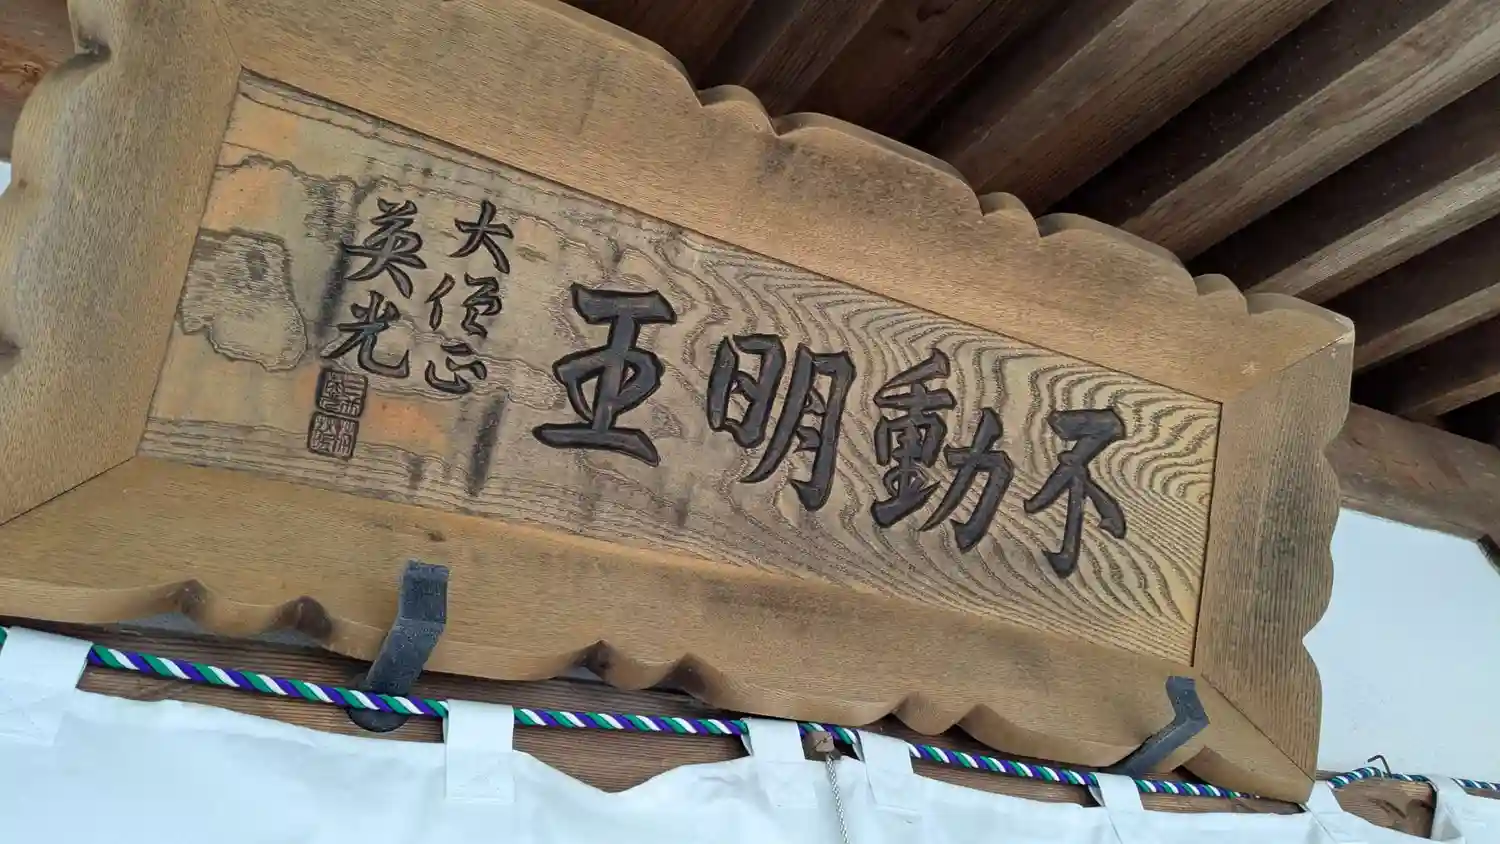 不動明王
大僧正
英光